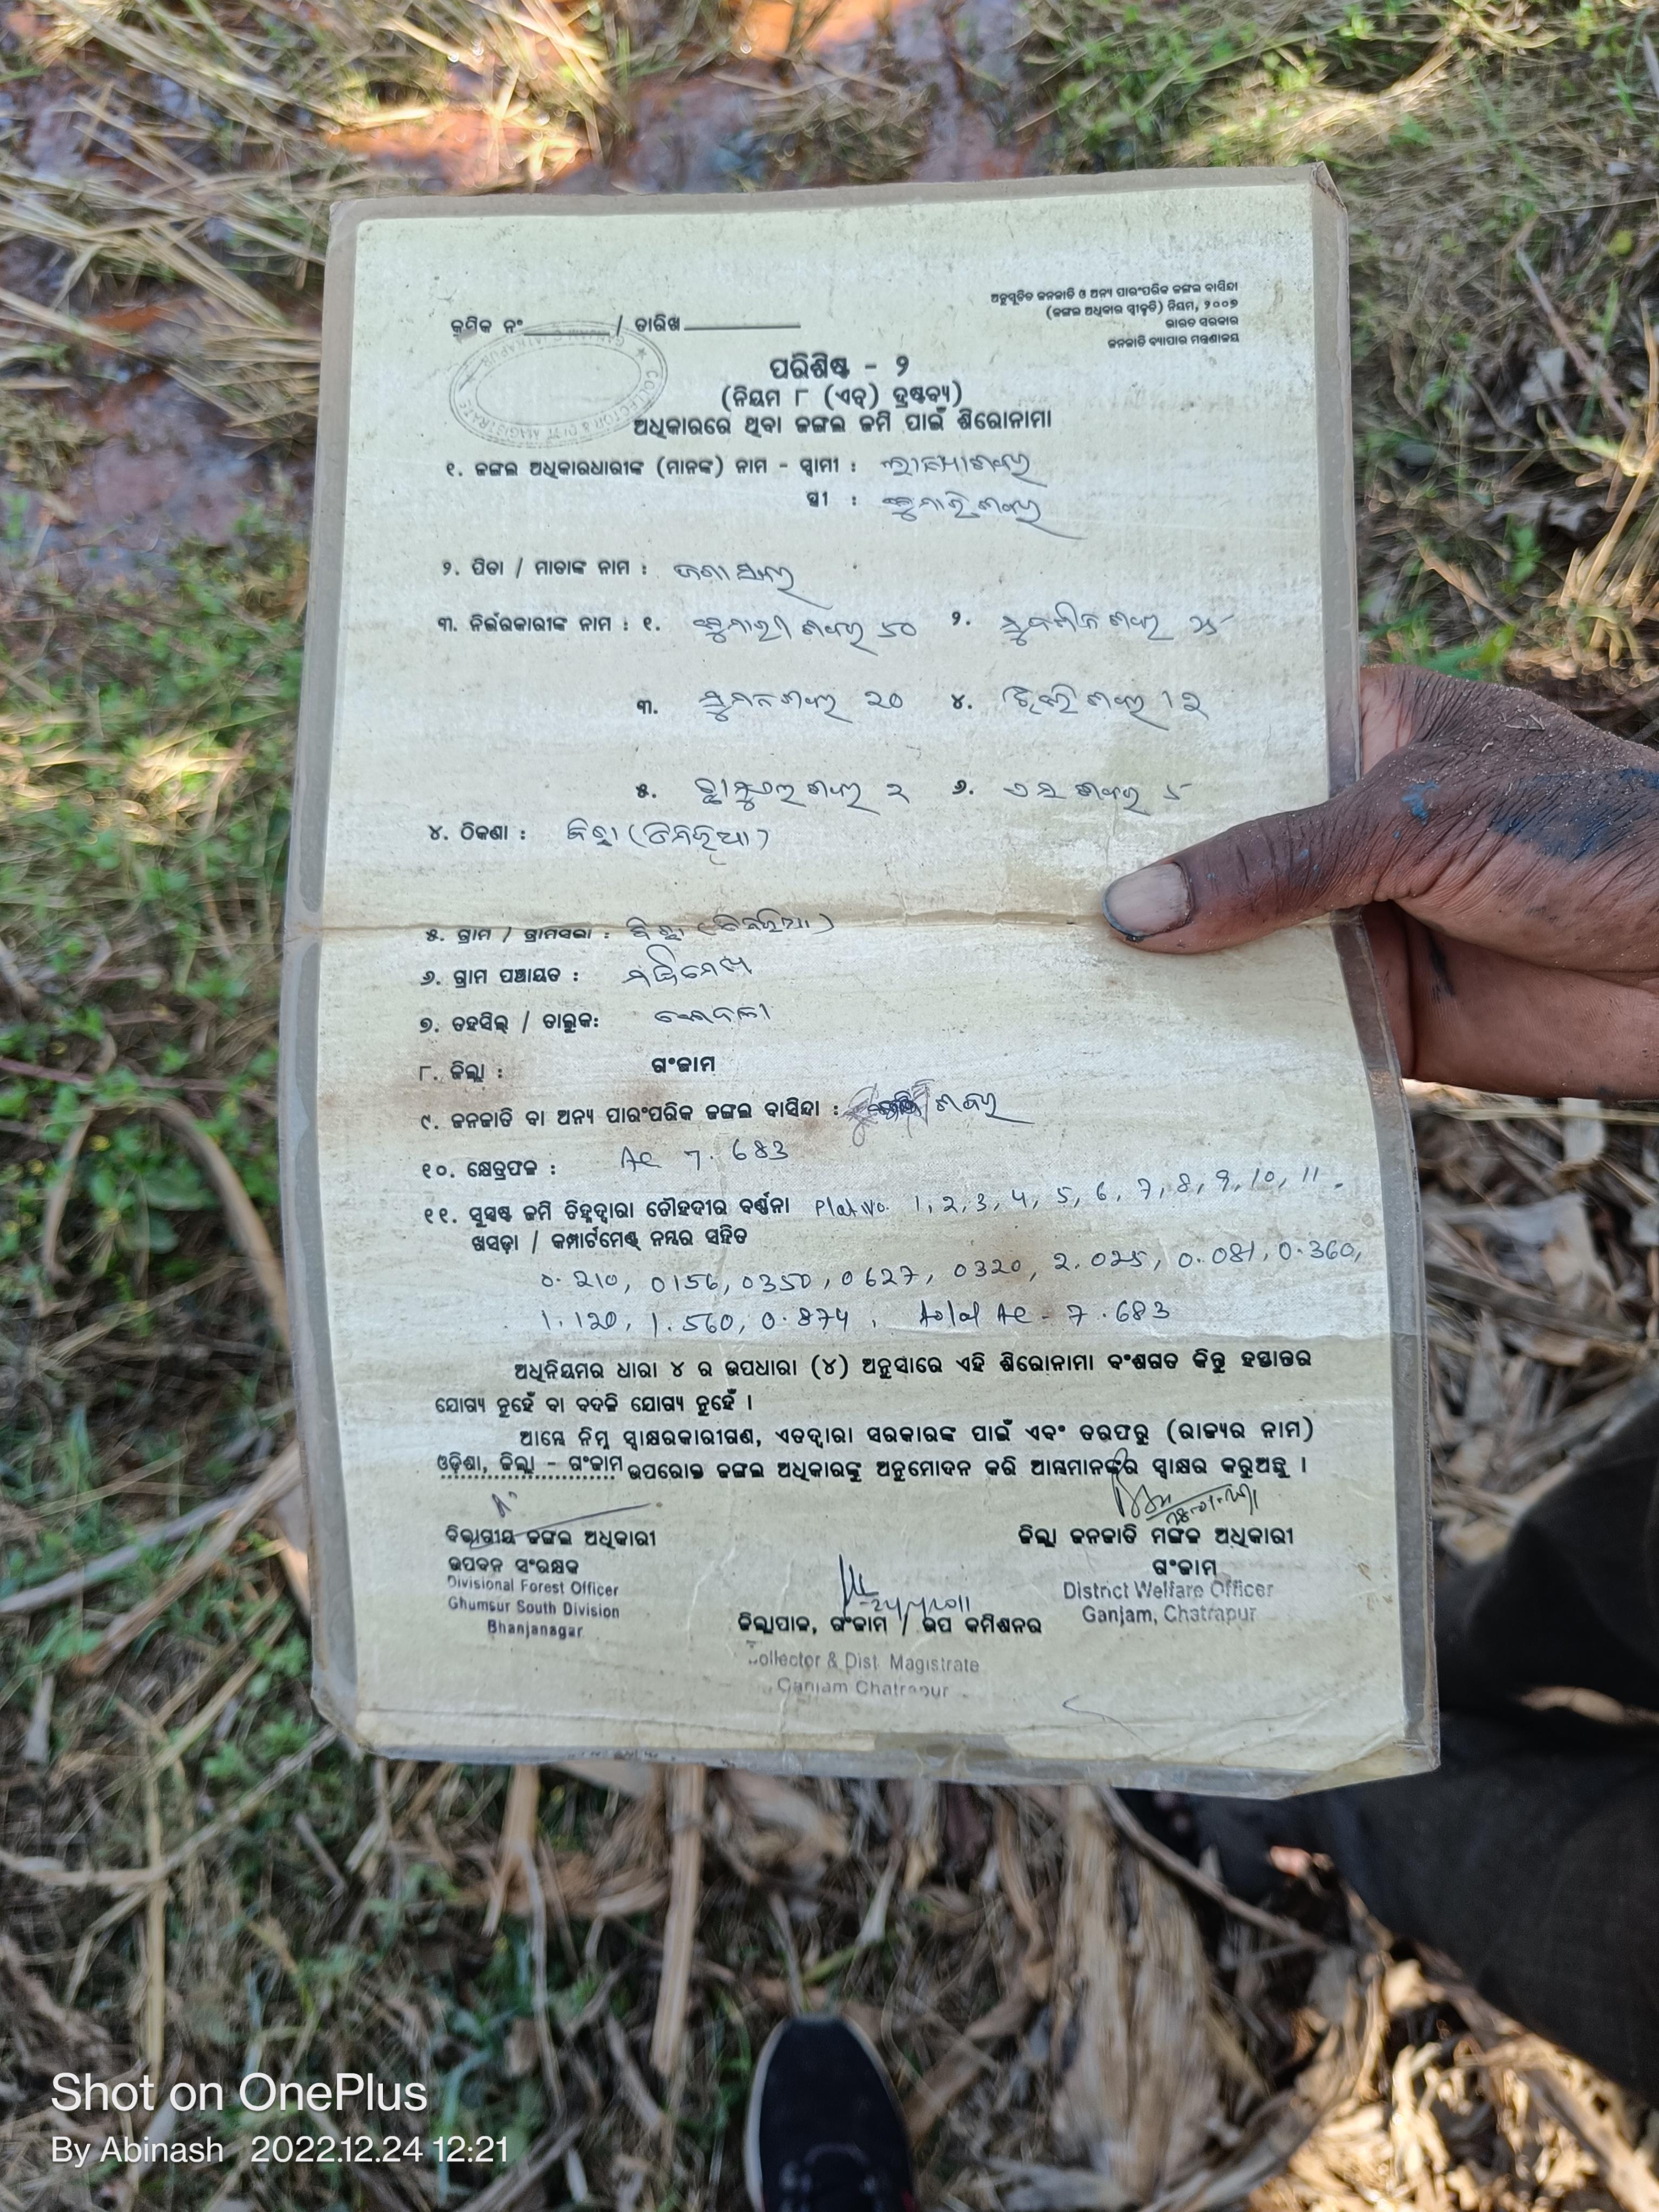 ଅନୁସୂଚିତ ଜନଜାତି ଓ ଅନ୍ୟ ପାରଂପରିକ ଜଙ୍ଗଲ ବାସିନ୍ଦା
(ଜଙ୍ଗଲ ଅଧିକାର ସ୍ୱୀକୃତି) ନିୟମ, ୨୦୦୭
ଭାରତ ସରକାର
ଜନଜାତି ବ୍ୟାପାର ମନ୍ତ୍ରଣାଳୟ
କ୍ରମିକ ନଂ / ତାରିଖ
COLLECTOR & DIST MAGISTRATE
ପରିଶିଷ୍ଟ - ୨
(ନିୟମ ୮ (ଏଚ୍) ଦ୍ରଷ୍ଟବ୍ୟ)
ଅଧିକାରରେ ଥିବା ଜଙ୍ଗଲ ଜମି ପାଇଁ ଶିରୋନାମା
୧. ଜଙ୍ଗଲ ଅଧିକାରଧାରୀଙ୍କ (ମାନଙ୍କ) ନାମ - ସ୍ୱାମୀ :
ସ୍ତ୍ରୀ :
୨. ପିତା / ମାତାଙ୍କ ନାମ :
୩. ନିର୍ଭରକାରୀଙ୍କ ନାମ : ୧. ଶବର ୫୦ ୨. ଶବର
୩. ଶବର ୨୦ ୪. ଶବର ୧୨
୫. ଶବର ୨ ୬. ଶବର ୫
୪. ଠିକଣା :
୫. ଗ୍ରାମ / ଗ୍ରାମସଭା :
୬. ଗ୍ରାମ ପଞ୍ଚାୟତ :
୭. ତହସିଲ୍ / ତାଲୁକ:
୮. ଜିଲ୍ଲା : ଗଂଜାମ
୯. ଜନଜାତି ବା ଅନ୍ୟ ପାରଂପରିକ ଜଙ୍ଗଲ ବାସିନ୍ଦା : ଶବର
୧୦. କ୍ଷେତ୍ରଫଳ : Ac 7.683
୧୧. ସୁସ୍ପଷ୍ଟ ଜମି ଚିହ୍ନଦ୍ୱାରା ଚୌହଦୀର ବର୍ଣ୍ଣନା Plot No. 1, 2, 3, 4, 5, 6, 7, 8, 9, 10, 11.
ଖସଡ଼ା / କମ୍ପାର୍ଟମେଣ୍ଟ ନମ୍ବର ସହିତ
0.210, 0156, 0350, 0627, 0320, 2.025, 0.081, 0.360,
1.120, 1.560, 0.874, Total Ac - 7.683
ଅଧିନିୟମର ଧାରା ୪ ର ଉପଧାରା (୪) ଅନୁସାରେ ଏହି ଶିରୋନାମା ବଂଶଗତ କିନ୍ତୁ ହସ୍ତାନ୍ତର
ଯୋଗ୍ୟ ନୁହେଁ ବା ବଦଳି ଯୋଗ୍ୟ ନୁହେଁ ।
ଆମ୍ଭେ ନିମ୍ନ ସ୍ୱାକ୍ଷରକାରୀଗଣ, ଏତଦ୍ୱାରା ସରକାରଙ୍କ ପାଇଁ ଏବଂ ତରଫରୁ (ରାଜ୍ୟର ନାମ)
ଓଡ଼ିଶା, ଜିଲ୍ଲା - ଗଂଜାମ ଉପରୋକ୍ତ ଜଙ୍ଗଲ ଅଧିକାରଙ୍କୁ ଅନୁମୋଦନ କରି ଆମ୍ଭମାନଙ୍କର ସ୍ୱାକ୍ଷର କରୁଅଛୁ ।
ବିଭାଗୀୟ ଜଙ୍ଗଲ ଅଧିକାରୀ
ଉପବନ ସଂରକ୍ଷକ
Divisional Forest Officer
Ghumsur South Division
Bhanjanagar
ଜିଲ୍ଲା ଜନଜାତି ମଙ୍ଗଳ ଅଧିକାରୀ
ଗଂଜାମ
District Welfare Officer
Ganjam, Chatrapur
ଜିଲ୍ଲାପାଳ, ଗଂଜାମ / ଉପ କମିଶନର
Collector & Dist. Magistrate
Ganjam Chatrapur
Shot on OnePlus
By Abinash 2022.12.24 12:21